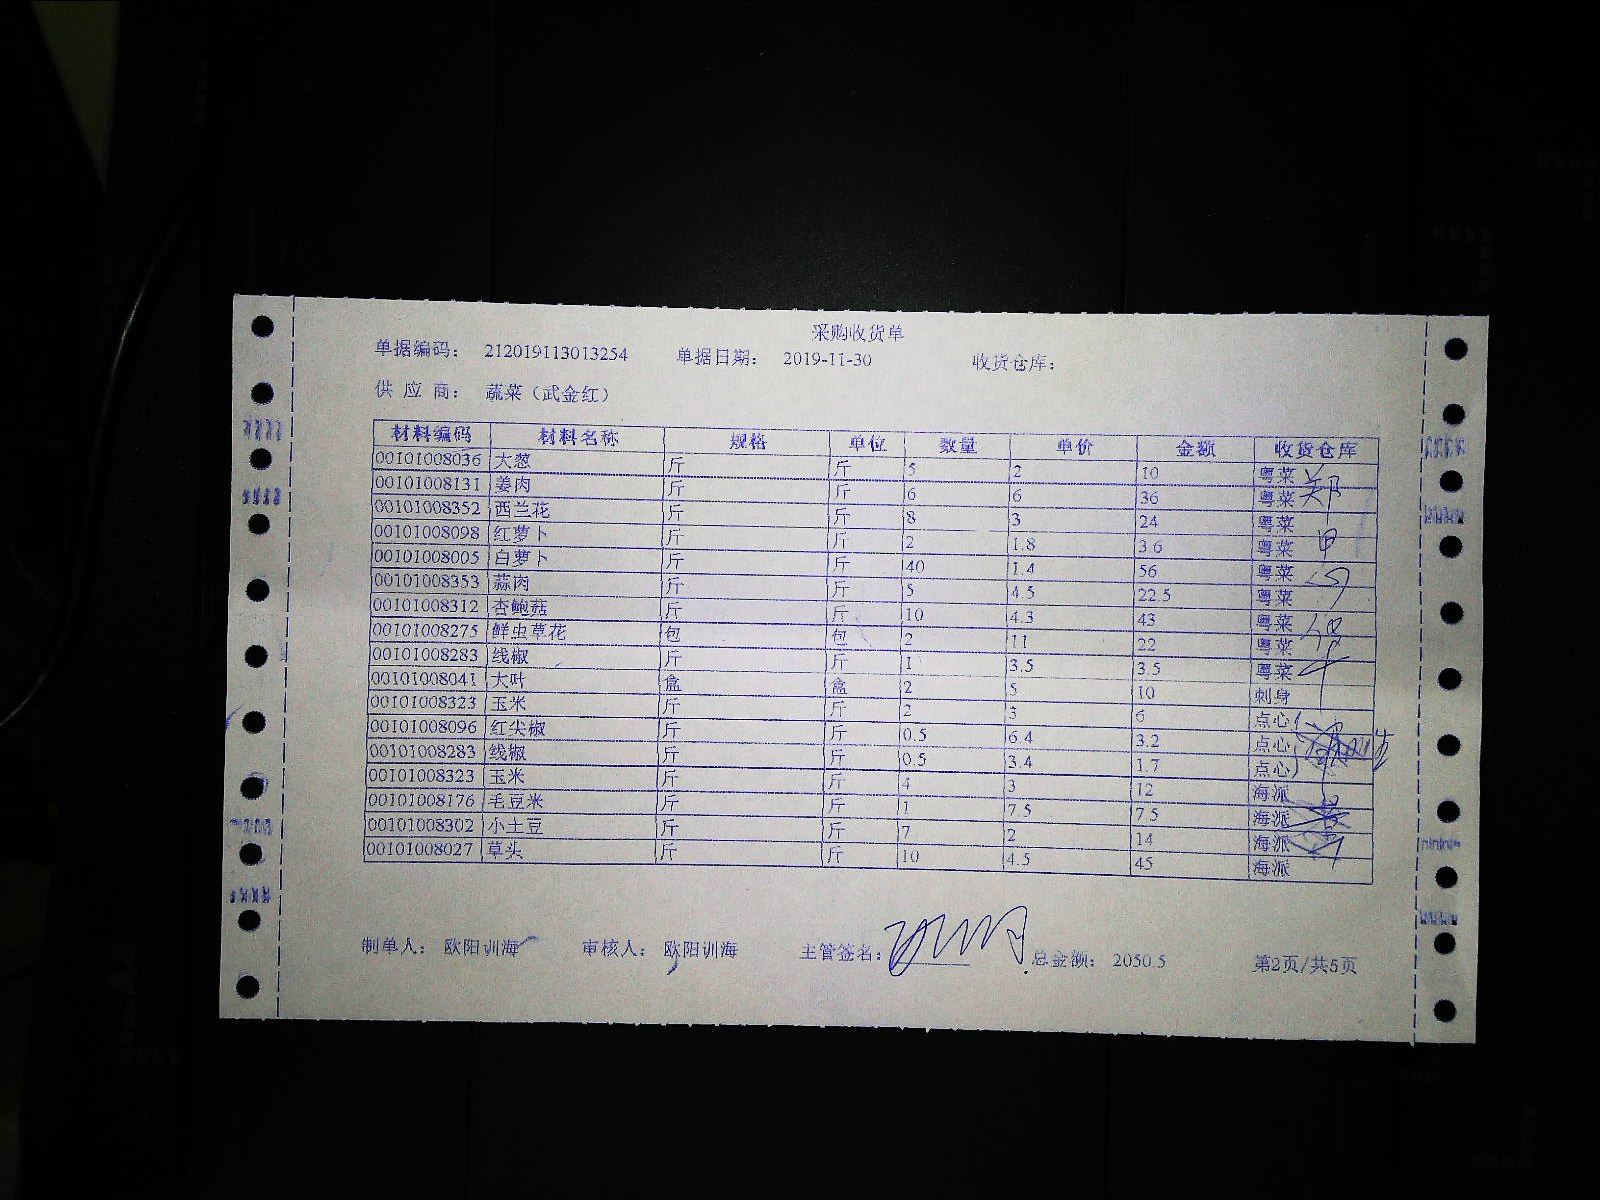 采购收货单
单据编码： 212019113013254 单据日期： 2019-11-30 收货仓库：
供 应 商： 蔬菜（武金红）
材料编码 材料名称 规格 单位 数量 单价 金额 收货仓库
00101008036 大葱 斤 斤 5 2 10 粤菜
00101008131 姜肉 斤 斤 6 6 36 粤菜
00101008352 西兰花 斤 斤 8 3 24 粤菜
00101008098 红萝卜 斤 斤 2 1.8 3.6 粤菜
00101008005 白萝卜 斤 斤 40 1.4 56 粤菜
00101008353 蒜肉 斤 斤 5 4.5 22.5 粤菜
00101008312 杏鲍菇 斤 斤 10 4.3 43 粤菜
00101008275 鲜虫草花 包 包 2 11 22 粤菜
00101008283 线椒 斤 斤 1 3.5 3.5 粤菜
00101008041 大叶 盒 盒 2 5 10 刺身
00101008323 玉米 斤 斤 2 3 6 点心
00101008096 红尖椒 斤 斤 0.5 6.4 3.2 点心
00101008283 线椒 斤 斤 0.5 3.4 1.7 点心
00101008323 玉米 斤 斤 4 3 12 海派
00101008176 毛豆米 斤 斤 1 7.5 7.5 海派
00101008302 小土豆 斤 斤 7 2 14 海派
00101008027 草头 斤 斤 10 4.5 45 海派
制单人： 欧阳训海 审核人： 欧阳训海 主管签名： 总金额： 2050.5 第2页/共5页